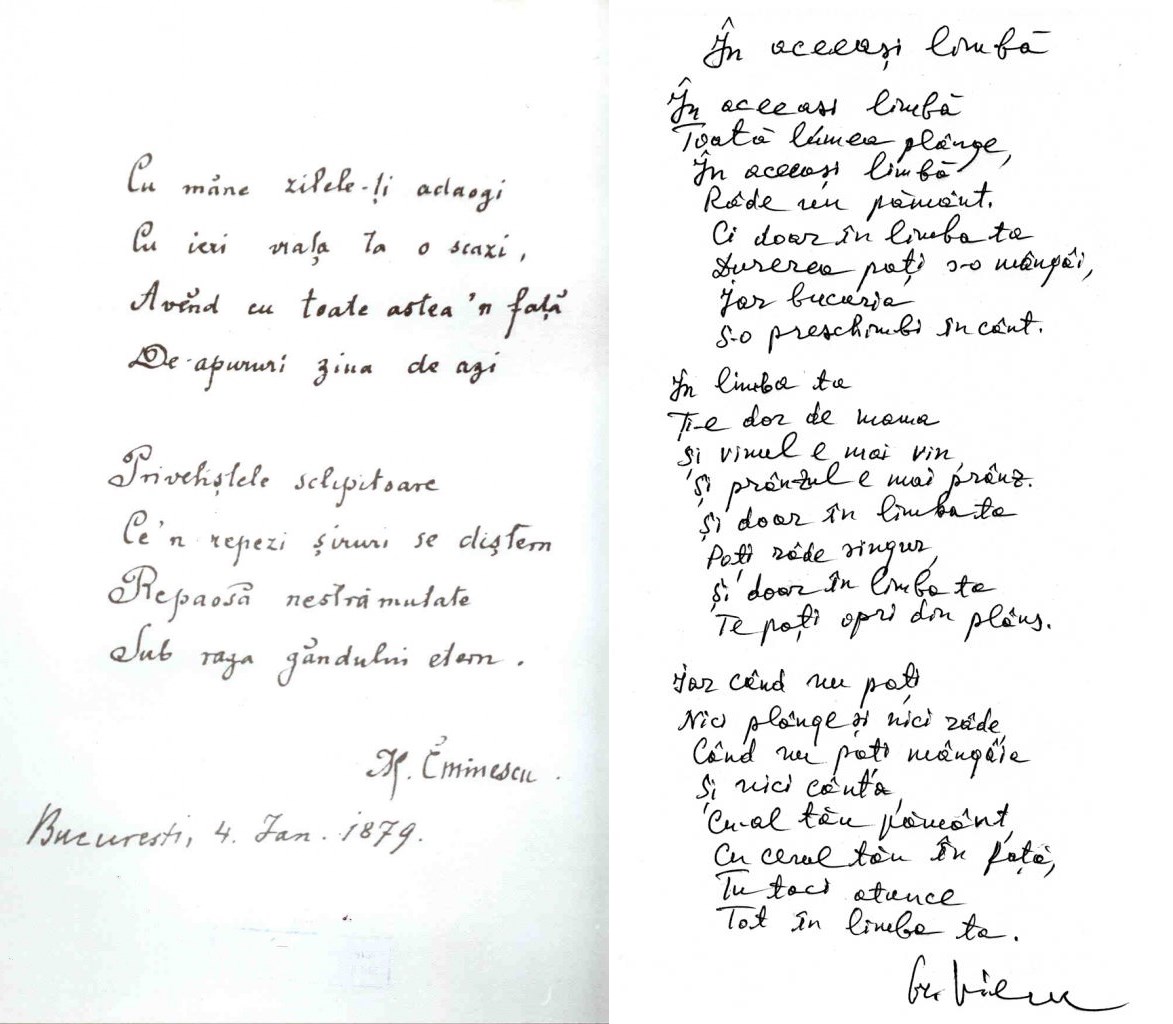 Cu măne zilele-ți adaogi
Cu ieri viața ta o scazi,
Avĕnd cu toate astea 'n față
De-apururi ziua de azi
Priveliștele sclipitoare
Ce 'n repezi șiruri se diștern
Repaosă nestrămutate
Sub raza găndului etern.
M. Ĕminescu.
Bucuresti, 4. Ian. 1879.
În aceeași limbă
În aceeasi limbă
Toată lumea plânge,
În aceeasi limbă
Râde un pământ.
Ci doar în limba ta
Durerea poți s-o mângâi,
Iar bucuria
S-o preschimbi în cânt.
În limba ta
Ți-e dor de mama
Și vinul e mai vin,
Și prânzul e mai prânz.
Și doar în limba ta
Poți râde singur,
Și doar în limba ta
Te poți opri din plâns.
Iar când nu poți
Nici plânge și nici râde,
Când nu poți mângâia
Și nici cânta,
Cu-al tău pământ,
Cu cerul tău în față,
Tu taci atunce
Tot în limba ta.
Gr. Vieru